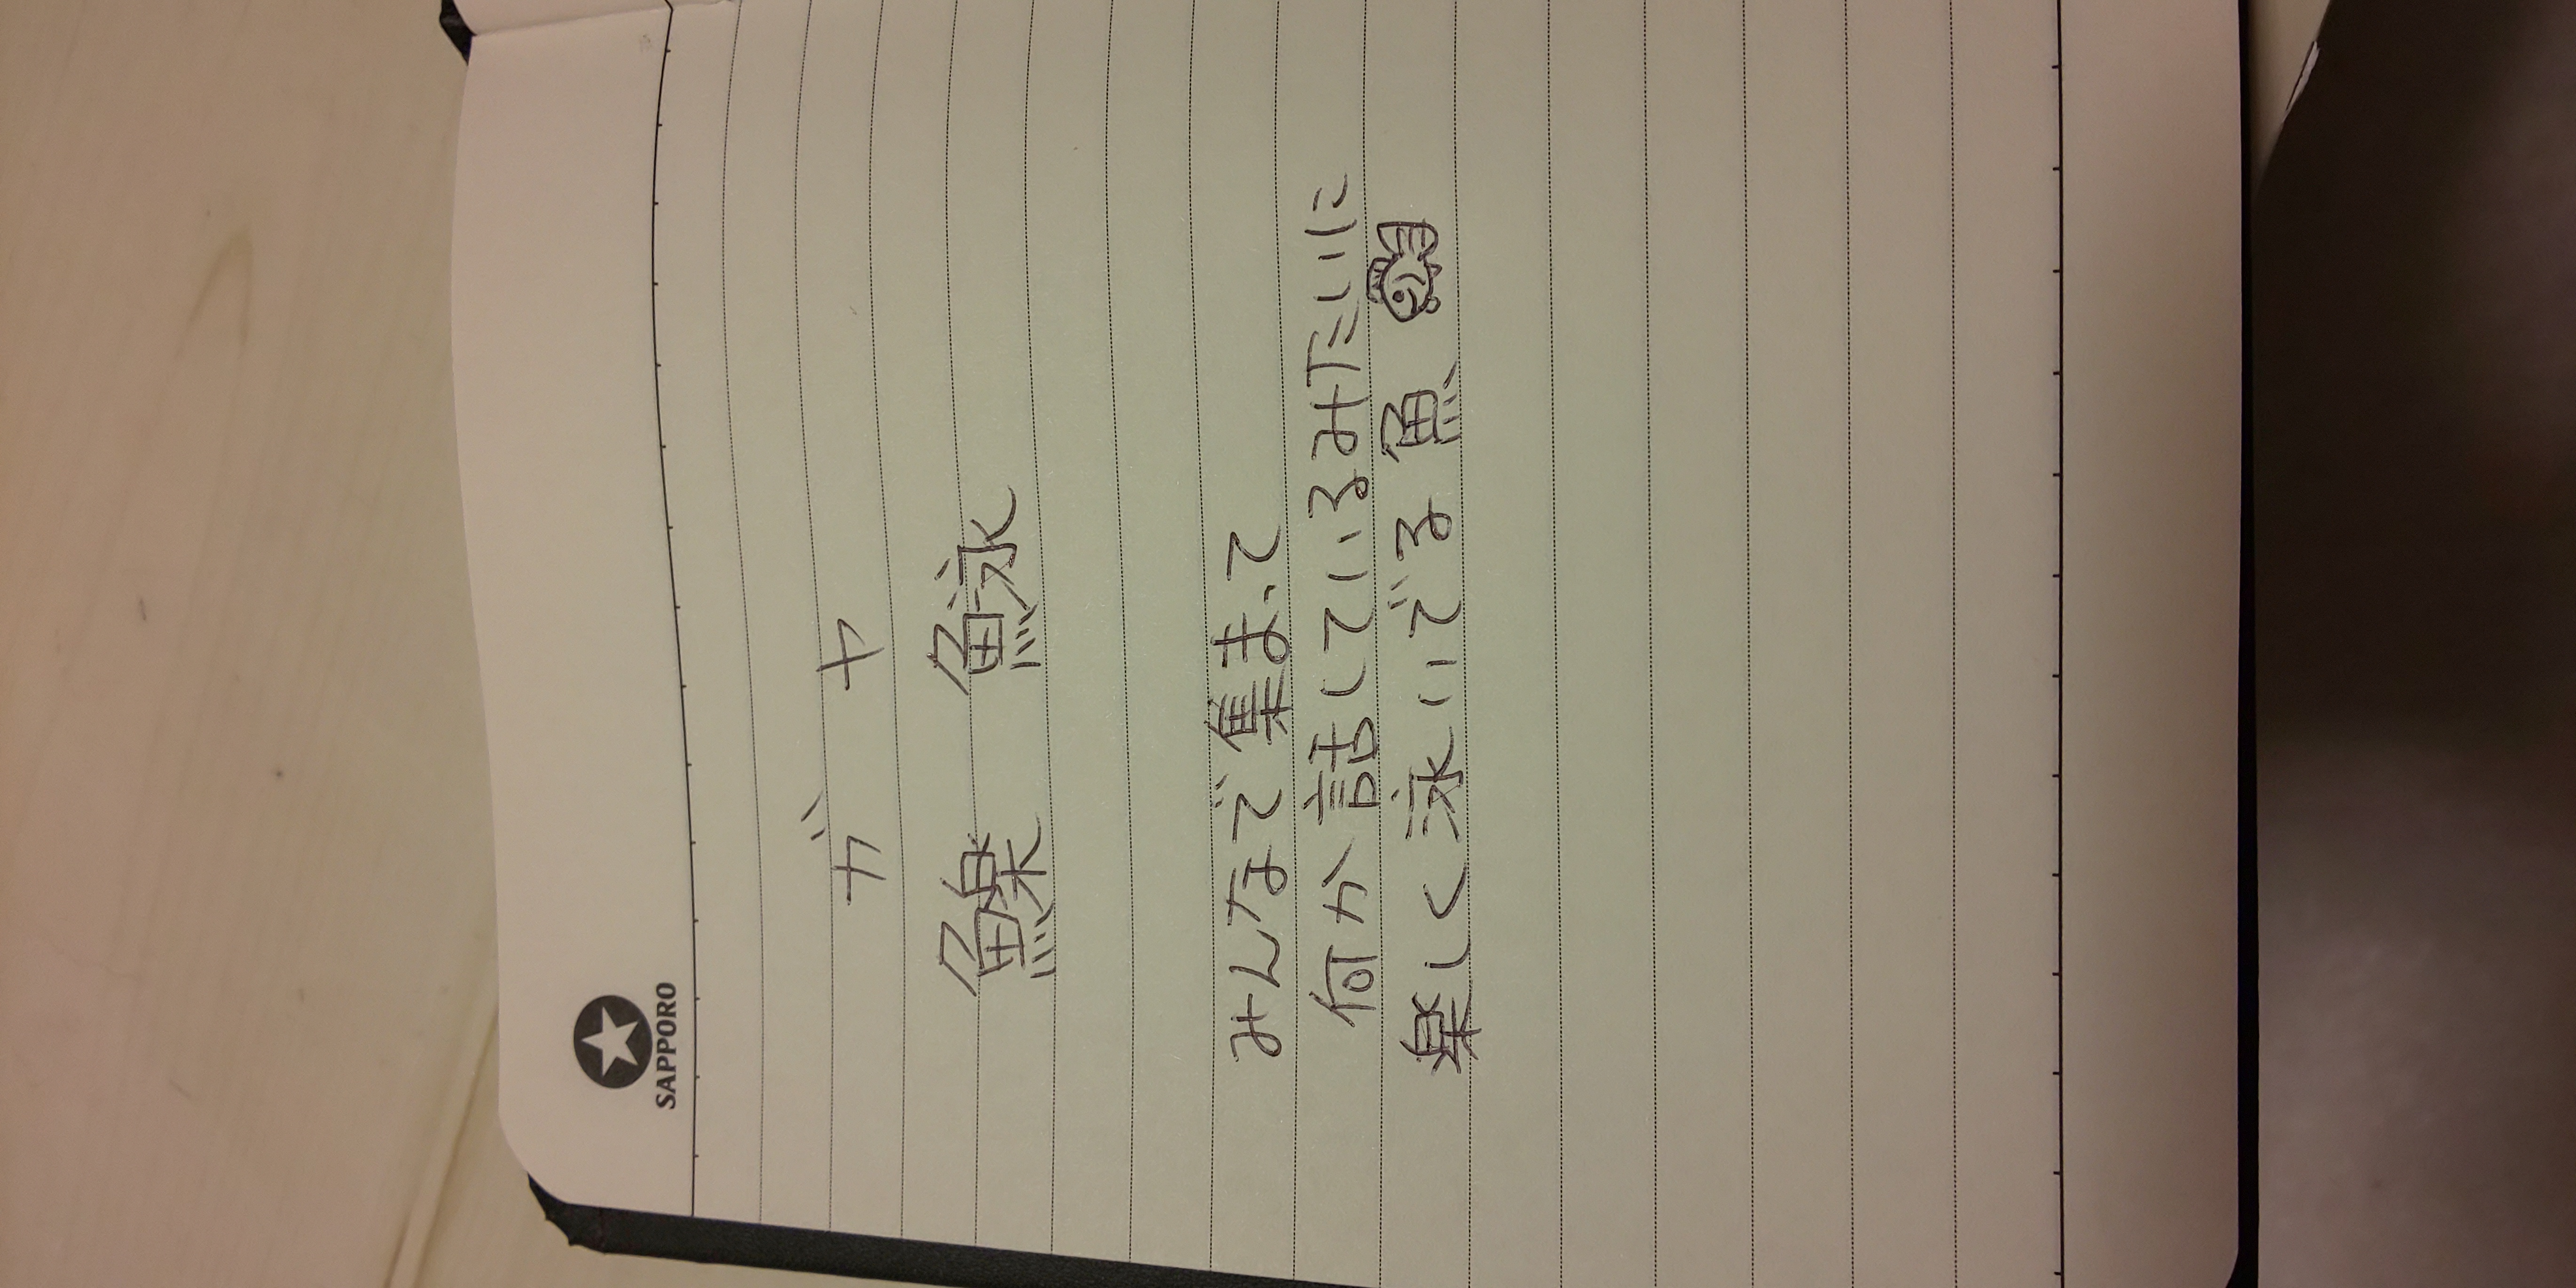 SAPPORO
ガ ヤ
魚楽 魚泳
みんなで集まって
何か話しているみたいに
楽しく泳いでる魚